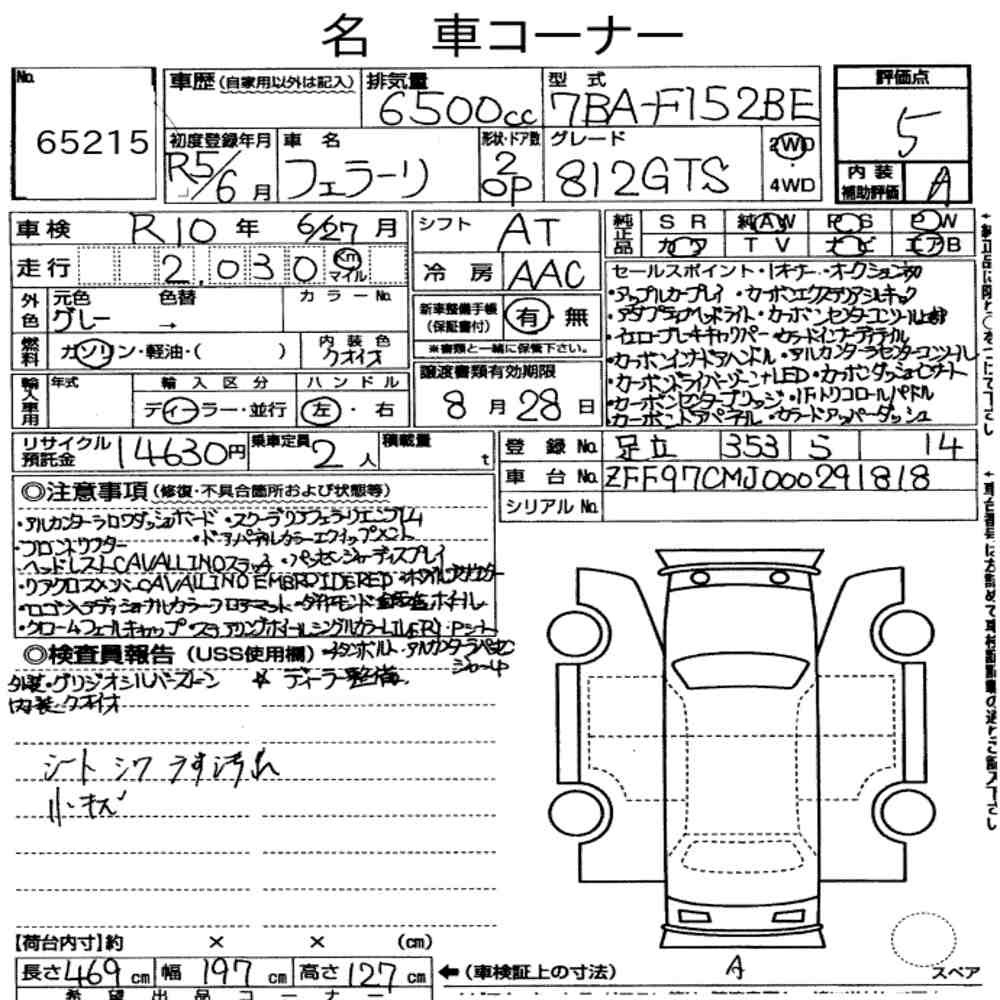 名 車コーナー
No. 65215
車歴 (自家用以外は記入)
排気量 6500cc
型式 7BA-F152BE
評価点 5
初度登録年月 R5/6月
車名 フェラーリ
形状・ドア数 2 OP
グレード 812GTS
2WD・4WD
内装補助評価 A
車検 R10年 6/27月
シフト AT
純正品 SR 純AW PS PW
カワ TV ナビ エアB
走行 2,030 Km マイル
冷房 AAC
外色 元色 グレー 色替 → カラーNo.
新車整備手帳(保証書付) 有・無
※書類と一緒に保管下さい。
燃料 ガソリン・軽油・( )
内装色 クオイオ
セールスポイント・1オーナー・オークション初
・アップルカープレイ・カーボンエクステリアシルキック
・アダプティブヘッドライト・カーボンセンターコンソール上部
・イエローブレーキキャリパー・カラードインナーディテイル
・カーボンインナードアハンドル・アルカンターラセンターコンソール
・カーボンドライバーゾーン+LED・カーボンダッシュインサート
・カーボンセンターブリッジ・IFトリコロールパドル
・カーボンドアパネル・カラードアッパーダッシュ
輸入車用 年式 輸入区分 ディーラー・並行
ハンドル 左・右
譲渡書類有効期限 8月28日
リサイクル預託金 14630円
乗車定員 2人
積載量 t
登録No. 足立 353 S 14
車台No. ZFF97CMJ000291818
シリアルNo.
◎注意事項 (修復・不具合箇所および状態等)
・アルカンターラロワダッシュボード・スクーデリアフェラーリエンブレム
・フロントリフター・ドアパネルカラーエクイップメント
・ヘッドレストCAVALLINOステッチ・パッセンジャーディスプレイ
・リアクロスメンバーCAVALLINO EMBROIDERED
・ロゴ入りアディショナルカラーフロアマット・ダイヤモンド ホイール
・クロームフューエルキャップ・ステアリングホイールシングルカラー
◎検査員報告 (USS使用欄)
・チタンボルト
外装・グリジオシルバーストーン ☆ ディーラー整備
内装クオイオ
シート シワ うす汚れ
小キズ
【荷台内寸】約 × × (cm)
長さ469cm 幅197cm 高さ127cm
←(車検証上の寸法)
A
スペア